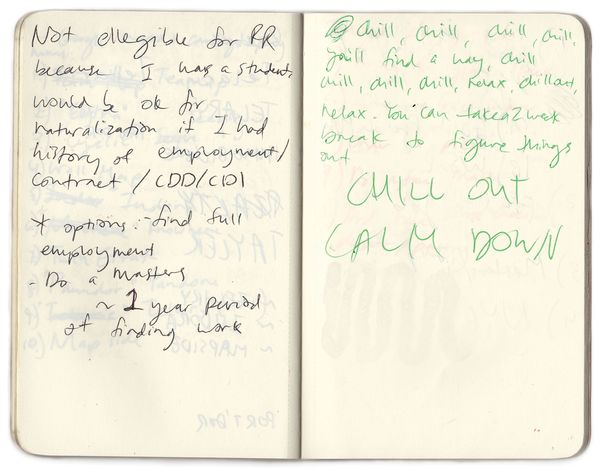 Not ellegible for PR
because I was a student,
would be ok for
naturalization if I had
history of employment/
contract /CDD/CDI
* options: - find full
employment
- Do a masters
~ 1 year period
of finding work
chill, chill, chill, chill,
you'll find a way, chill
chill, chill, chill, relax, chill out,
relax. You can take a 2 week
break to figure things
out
CHILL OUT
CALM DOWN